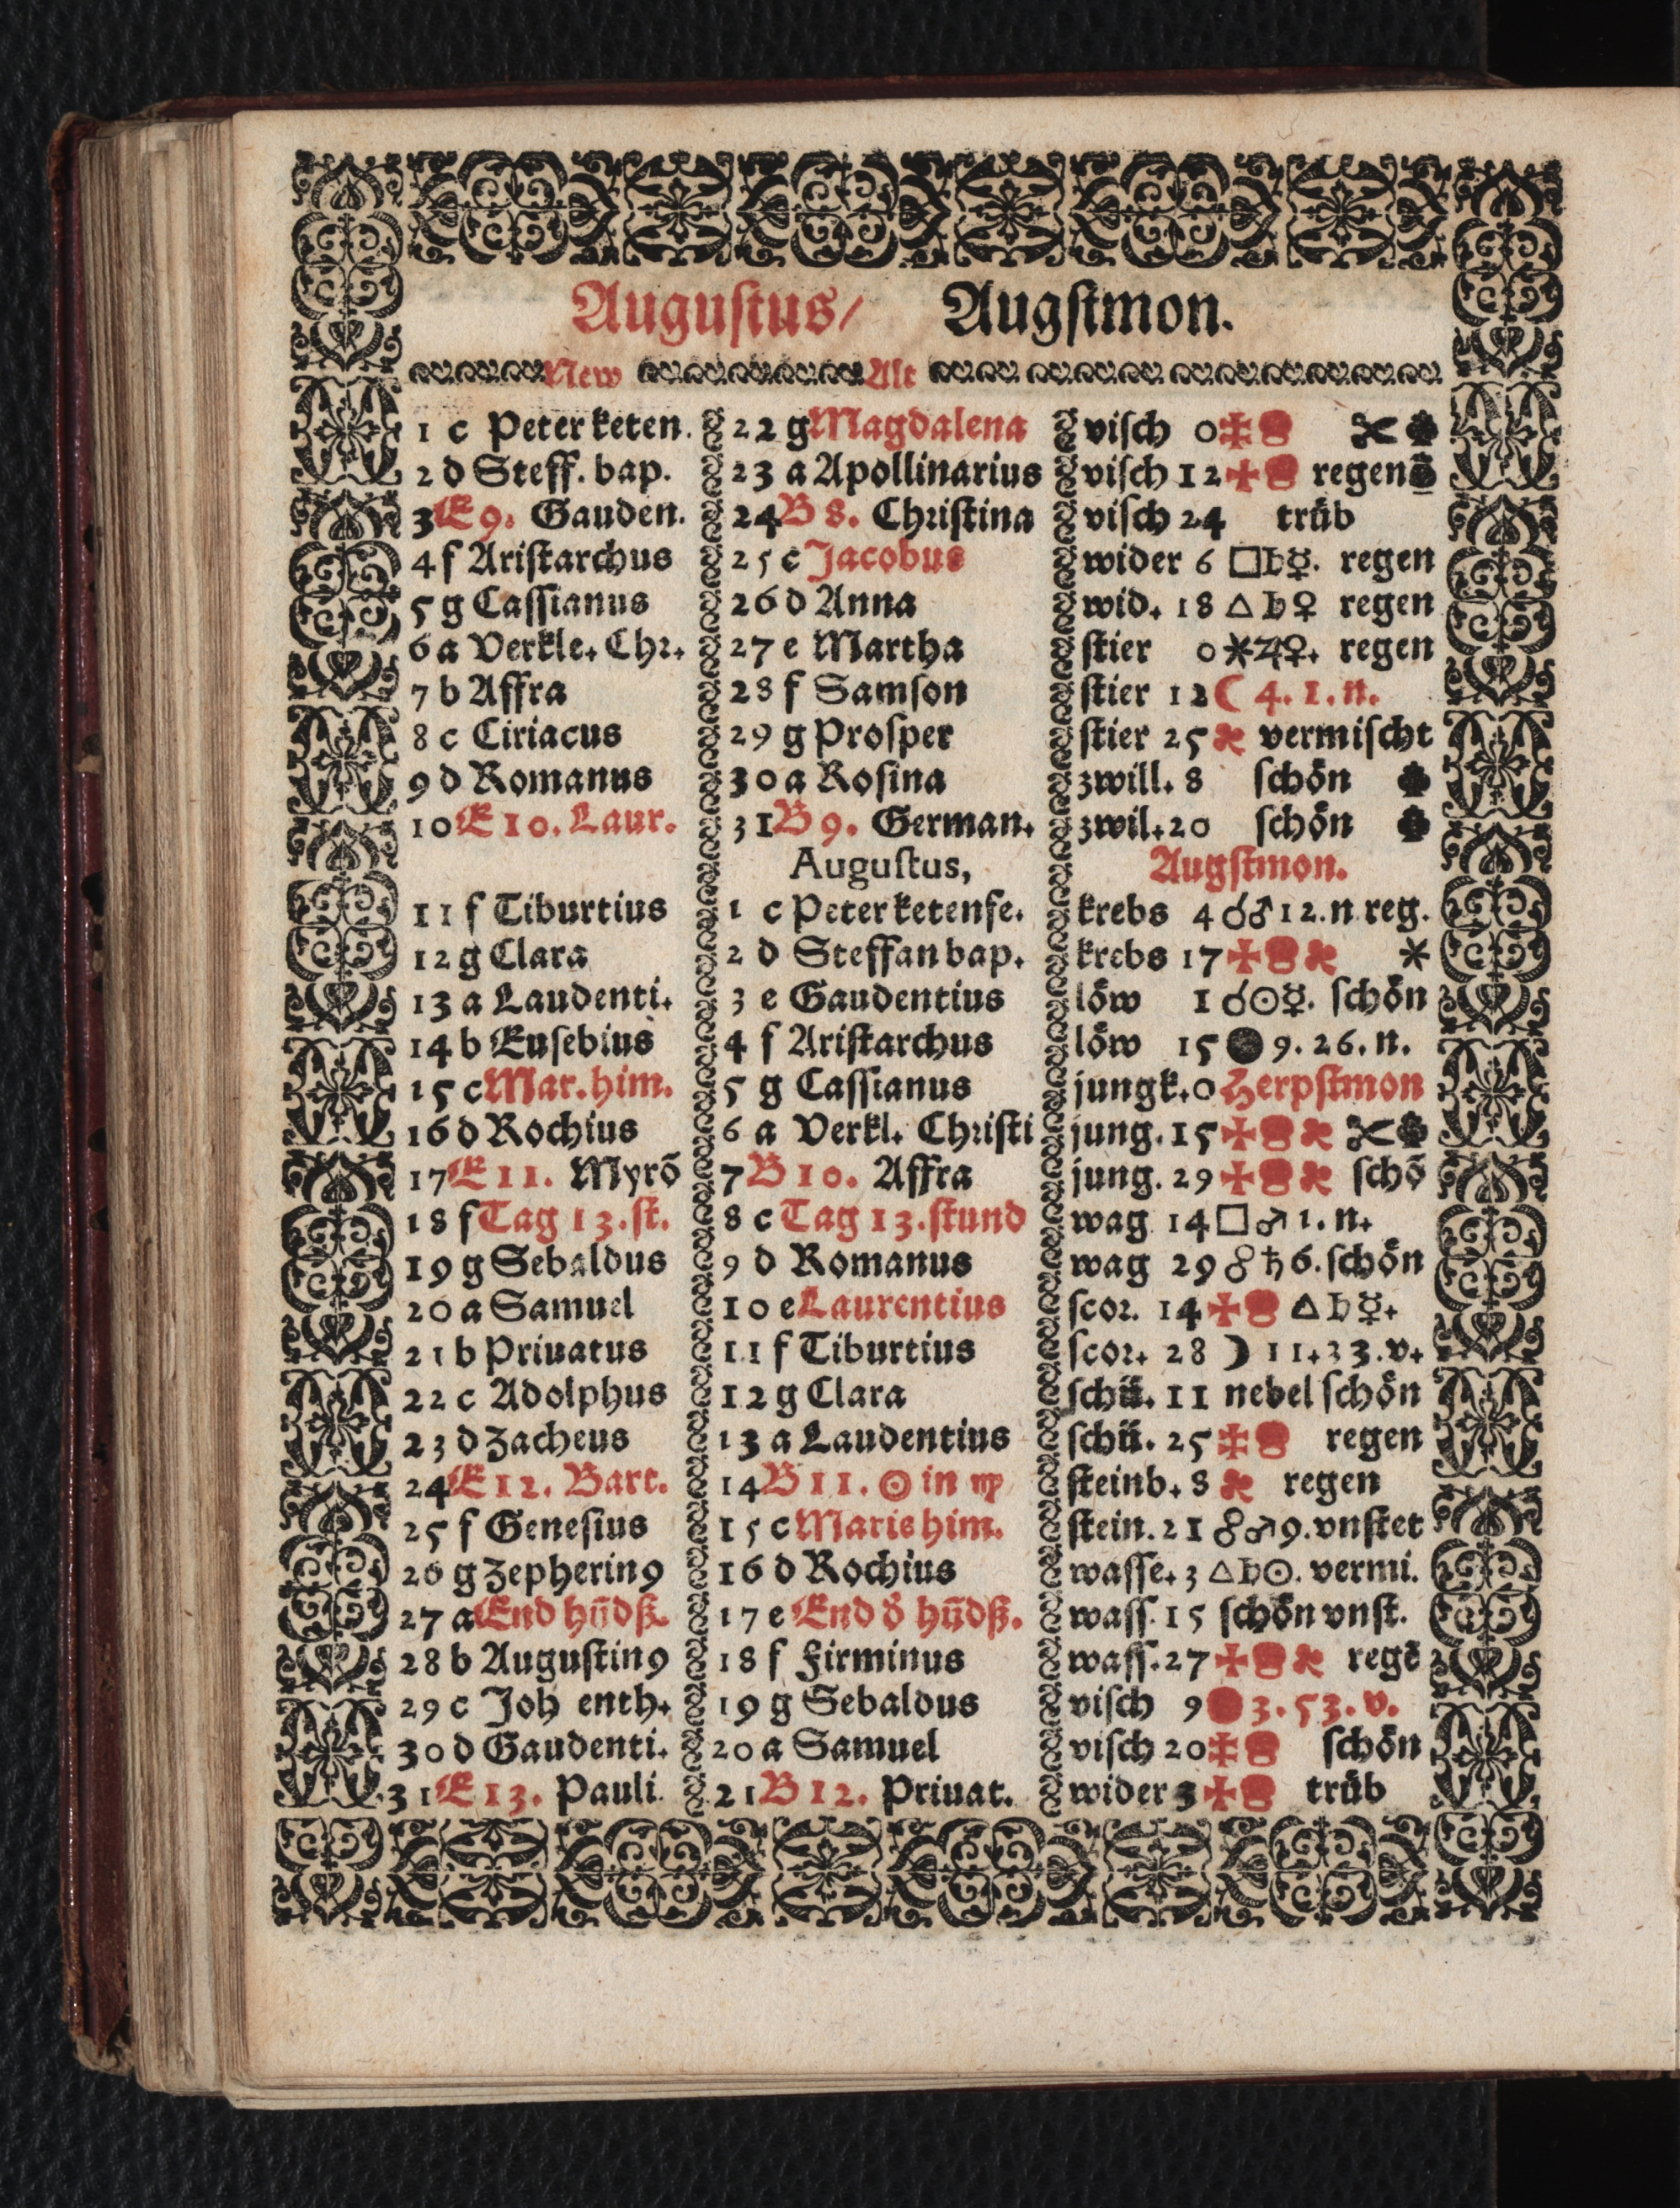 Augustus/ Augstmon.
New Alt
1 c Peter keten. 22 g Magdalena visch 0
2 d Steff. bap. 23 a Apollinarius visch 12 regen
3 E 9. Gauden. 24 B 8. Christina visch 24 trüb
4 f Aristarchus 25 c Jacobus wider 6 □♄☿. regen
5 g Cassianus 26 d Anna wid. 18 △♄♀ regen
6 a Verkle. Chr. 27 e Martha stier 0 ⚹♃♀. regen
7 b Affra 28 f Samson stier 12 ☾ 4. 1. n.
8 c Ciriacus 29 g Prosper stier 25 vermischt
9 d Romanus 30 a Rosina zwill. 8 schön
10 E 10. Laur. 31 B 9. German. zwil. 20 schön
Augustus, Augstmon.
11 f Tiburtius 1 c Peter ketenfe. krebs 4 ☌♂ 12. n. reg.
12 g Clara 2 d Steffan bap. krebs 17 ✠ ⚹
13 a Laudenti. 3 e Gaudentius löw 1 ☌☉☿. schön
14 b Eusebius 4 f Aristarchus löw 15 ● 9. 26. n.
15 c Mar. him. 5 g Cassianus jungk. 0 Herpstmon
16 d Rochius 6 a Verkl. Christi jung. 15 ✠
17 E 11. Myrō 7 B 10. Affra jung. 29 ✠ schō
18 f Tag 13. st. 8 c Tag 13. stund wag 14 □♂ 1. n.
19 g Sebaldus 9 d Romanus wag 29 ☍♄ 6. schön
20 a Samuel 10 e Laurentius scor. 14 ✠ △♄☿.
21 b Priuatus 11 f Tiburtius scor. 28 ☽ 11. 33. v.
22 c Adolphus 12 g Clara schü. 11 nebel schön
23 d Zacheus 13 a Laudentius schü. 25 regen
24 E 12. Bart. 14 B 11. ☉ in ♍ steinb. 8 regen
25 f Genesius 15 c Marie him. stein. 21 ☍♂ 9. vnstet
26 g Zepherin9 16 d Rochius wasse. 3 △♄☉. vermi.
27 a End hūdß. 17 e End d̓ hūdß. wass. 15 schön vnst.
28 b Augustin9 18 f Firminus wass. 27 ✠ regē
29 c Joh enth. 19 g Sebaldus visch 9 ● 3. 53. v.
30 d Gaudenti. 20 a Samuel visch 20 schön
31 E 13. Pauli. 21 B 12. Priuat. wider 3 ✠ trüb